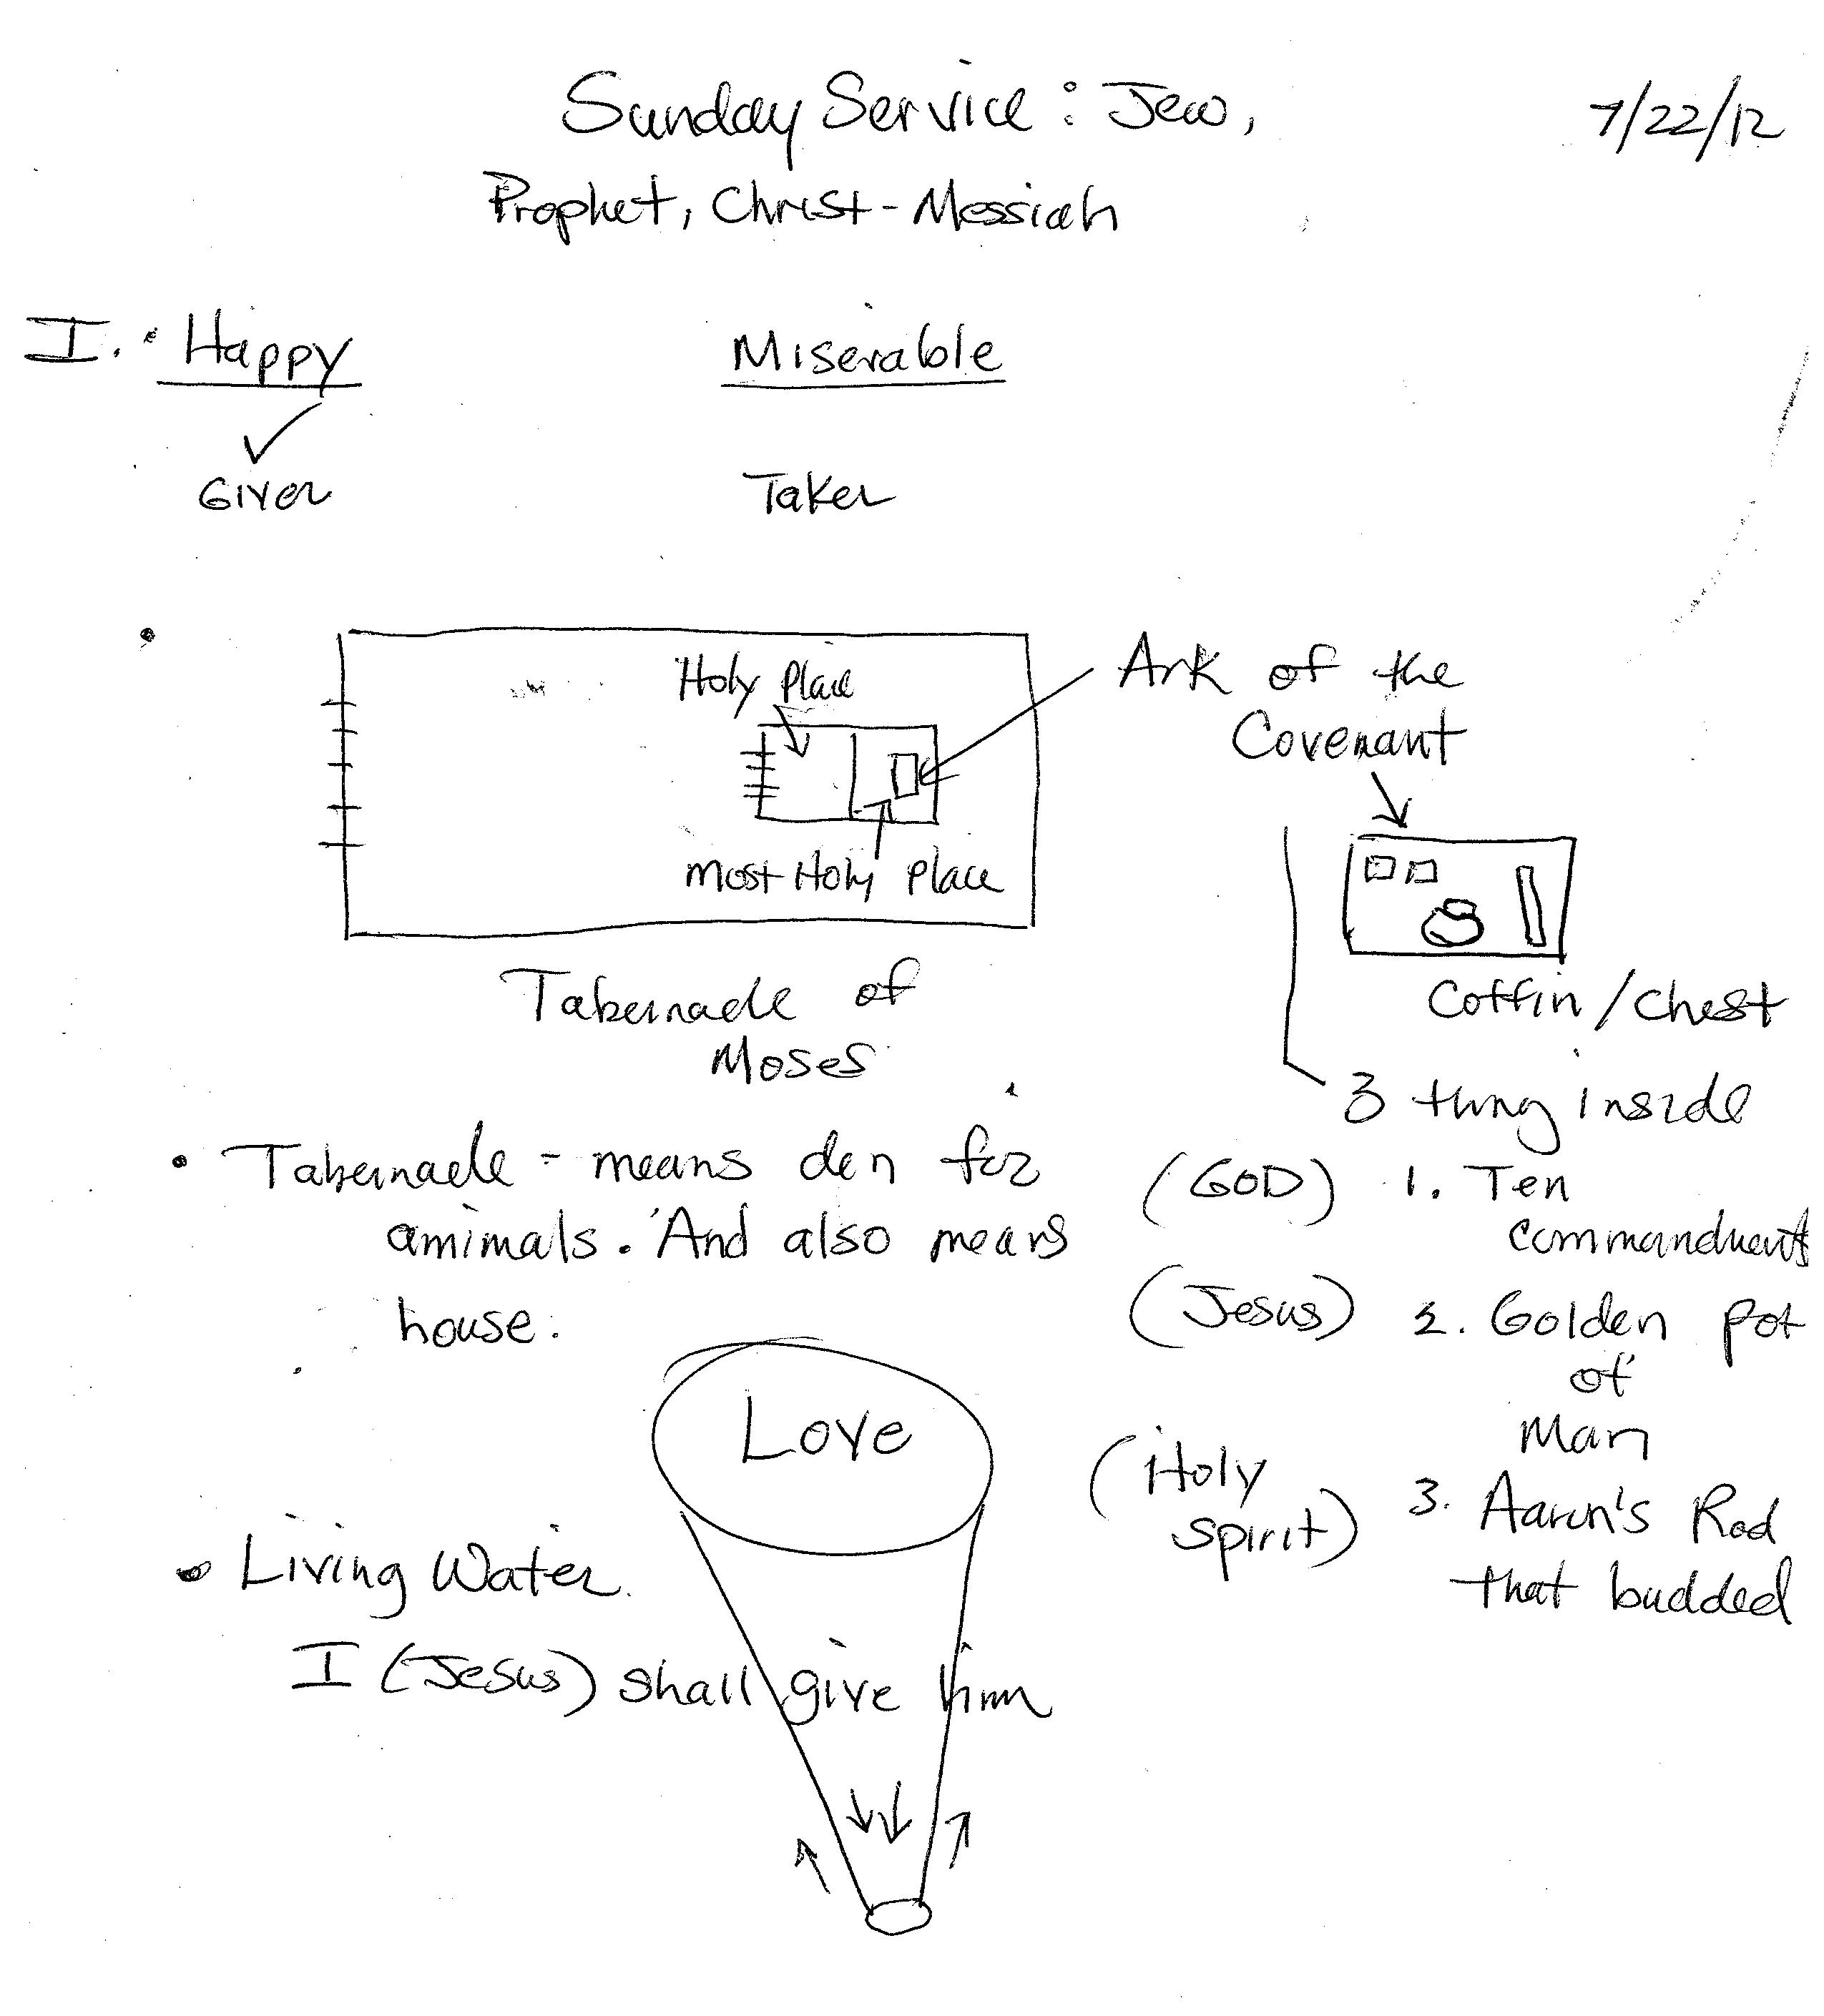 Sunday Service: Jew,
7/22/12
Prophet, Christ-Messiah
I. • Happy
Miserable
Giver
Taker
•
Holy Place
Most Holy Place
Tabernacle of
Moses
Ark of the
Covenant
Coffin/Chest
3 thing inside
(GOD) 1. Ten
commandment
(Jesus) 2. Golden pot
of
Man
(Holy
Spirit)
3. Aaron's Rod
that budded
• Tabernacle - means den for
amimals. And also means
house.
Love
• Living Water.
I (Jesus) shall give him